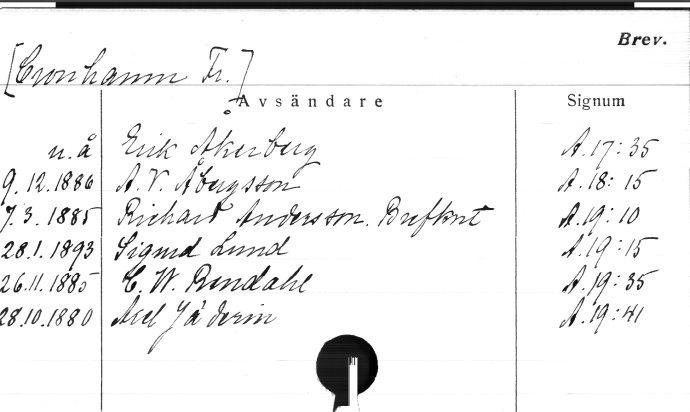 Brev.
[Cronhamn Fr.]
Avsändare Signum
u.å Erik Åkerberg A.17:35
9.12.1886 A. V. Åbergsson A.18:15
7.3.1885 Richard Andersson. Brefkort A.19:10
28.1.1893 Sigrid Lund A.19:15
26.11.1885 C. W. Rendahl A.19:35
28.10.1880 Axel Jäderin A.19:41